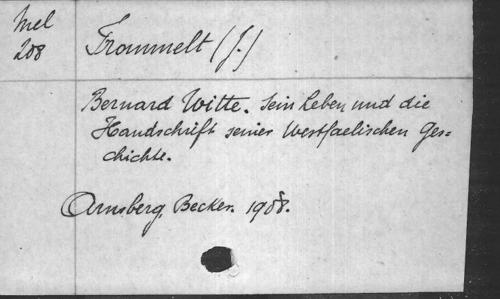 Mel
208
Trommelt (J.)
Bernard Witte. Sein Leben und die
Handschrift seiner Westfaelischen Ges=
chichte.
Arnsberg, Becker. 1908.